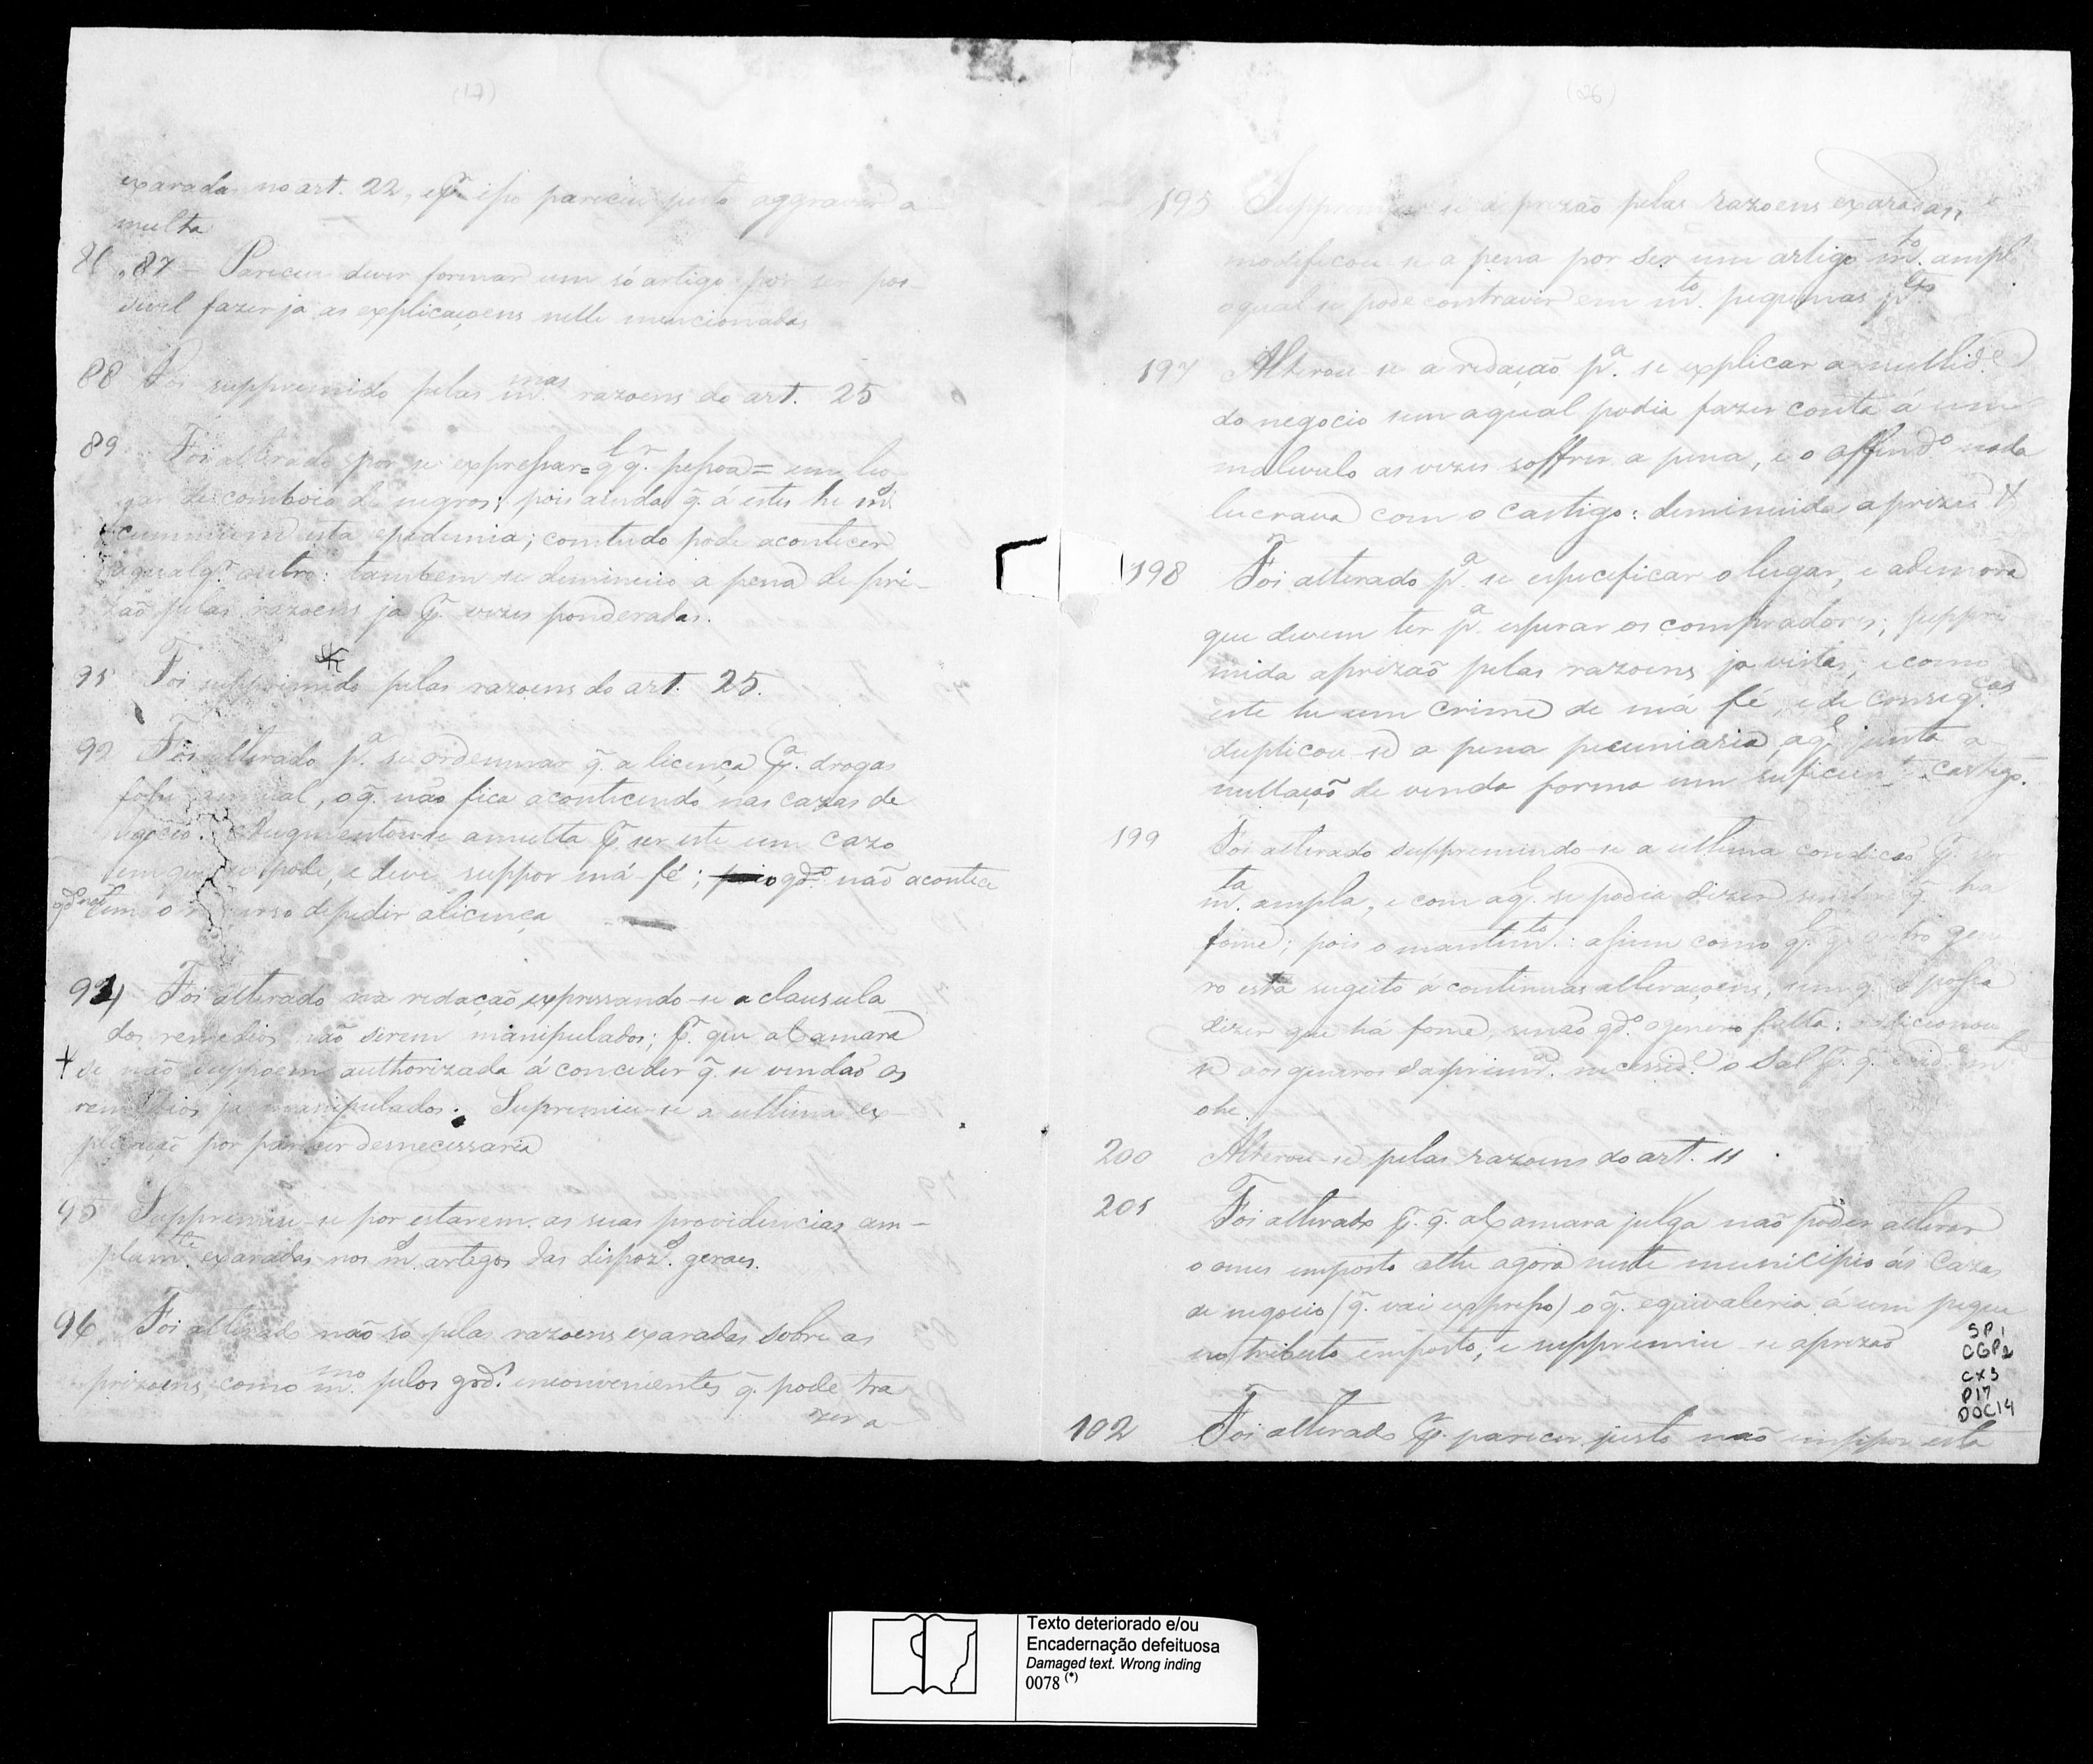 (17)
exarada no art. 22, e pr. isso pareceu justo aggravar a
multa
86, 87 – Pareceu dever formar um só artigo por ser pos-
sivel fazer ja as explicaçoens nelle mencionadas
88 Foi suppremido pelas m.mas razoens do art. 25
89 Foi alterado por se expressar = q.l q.r pessoa = em lu-
gar de comboio de negros; pois ainda q. á estes he
cummum esta epedemia; comtudo pode acontecer
qualq.r outro: tambem se deminuio a pena de pri-
zão pelas razoens ja pr. vezes ponderadas.
91 Foi suppremido pelas razoens do art. 25.
92 Foi alterado p.a se ordennar q. a licença p.a drogas
fosse annual, o q. não fica acontecendo nas cazas de
negocio. Augmentou-se a multa pr. ser este um cazo
em que se pode, e deve suppor má fé; q.do não acontece
o recurso de pedir a licença
94 Foi alterado na redacção expressando-se a clausula
dos remedios não serem manipulados; pr. que a Camara
+ se não suppoem authorizada á conceder q. se vendão os
remedios ja manipulados. Supremiu-se a ultima ex-
plicação por parecer desnecessaria
95 Suppremiu-se por estarem as suas providencias am-
plam.te exaradas nos m.s artegos das dispoz.s geraes.
96 Foi alterado não só pelas razoens exaradas sobre as
prizoens, como m.mo pelos gr.des inconvenientes q. pode tra
zer a
(26)
195 Suppremiu se a prizão pelas razoens exaradas,
modificou se a pena por ser um artigo m.to ampl
o qual se pode contravir em m.to pequenas p.tes
197 Alterou-se a redacção p.a se explicar a nullid.e
do negocio sem a qual podia fazer conta á um
malevolo as vezes soffrer a pena, e o offend.o nada
lucrava com o castigo: deminuida a prizão
198 Foi alterado p.a se especificar o lugar, e a demora
que devem ter p.a esperar os compradores; suppre
mida a prizão pelas razoens ja vistas, e como
este he um crime de má fé, e de conseq.cas
duplicou-se a pena pecuniaria, a q.l junta a
nullação de venda forma um suficien.te castigo.
199 Foi alterado suppremindo-se a ultima condicão pr. ser
m.ta ampla, e com a q.l se podia dizer sempre q. ha
fome; pois o mantim.to: assim como q.l q.r outro gen
ro está sugeito á continuas alteraçoens, sem q. se possa
dizer que há fome, senão q.do o genero falta: adicionou
se aos generos da prim.ra necessid.e o Sal pr. q.
o he.
200 Alterou-se pelas razoens do art. 11
201 Foi alterado pr. q. a Camara julga não poder alterar
o onus imposto athe agora neste municipio ás Cazas
de negocio (q. vai expresso) o q. equivaleria á um peque
no tributo imposto; e suppremiu-se a prizão
102 Foi alterado pr. parecer justo não impor esta
SP1
CGP2
CX3
P17
DOC14
Texto deteriorado e/ou
Encadernação defeituosa
Damaged text. Wrong inding
0078 (*)